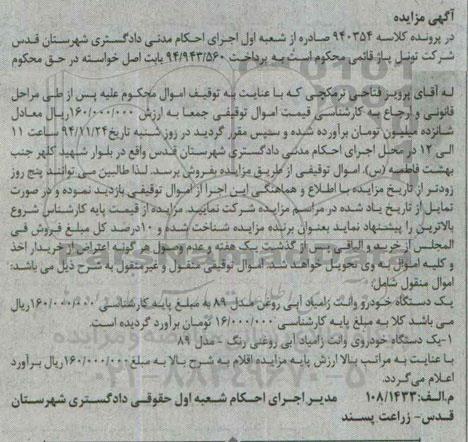 آگهی مزایده
در پرونده کلاسه ۹۴۰۳۵۴ صادره از شعبه اول اجرای احکام مدنی دادگستری شهرستان قدس
شرکت تونل پاژ قائمی محکوم است به پرداخت ۹۴/۹۴۳/۵۶۰ بابت اصل خواسته در حق محکوم
له آقای پرویز فتاحی نرمکچی که با عنایت به توقیف اموال محکوم علیه پس از طی مراحل
قانونی و ارجاع به کارشناسی قیمت اموال توقیفی جمعا به ارزش ۱۶۰/۰۰۰/۰۰۰ریال معادل
شانزده میلیون تومان برآورده شده و سپس مقرر گردید در روز شنبه تاریخ۹۴/۱۱/۲۴ ساعت ۱۱
الی ۱۲ در محل اجرای احکام مدنی دادگستری شهرستان قدس واقع در بلوار شهید کلهر جنب
بهشت فاطمیه (س)، اموال توقیفی از طریق مزایده بفروش برسد. لذا طالبین می توانند پنج روز
زودتر از تاریخ مزایده با اطلاع و هماهنگی این اجرا از اموال توقیفی بازدید نموده و در صورت
تمایل از تاریخ یاد شده در مراسم مزایده شرکت نمایند. مزایده از قیمت پایه کارشناس شروع
بالاترین را پیشنهاد نماید بعنوان برنده مزایده شناخته شده و ۱۰درصد کل مبلغ فروش فی
المجلس از خرید و الباقی پس از گذشت یک هفته و عدم وصول هر گونه اعتراض از خریدار اخذ
و کلیه اموال به وی تحویل خواهد شد. اموال توقیفی منقول و غیرمنقول به شرح ذیل می باشد:
اموال منقول شامل:
یک دستگاه خودرو وانت زامیاد آبی روغن مدل ۸۹ به مبلغ پایه کارشناسی ۱۶۰/۰۰۰/۰۰۰ریال
می باشد کلا به مبلغ پایه کارشناسی ۱۶/۰۰۰/۰۰۰ تومان برآورد گردیده است.
۱-یک دستگاه خودروی وانت زامیاد آبی روغنی رنگ - مدل ۸۹
با عنایت به مراتب بالا ارزش پایه مزایده اقلام به شرح بالا به مبلغ۱۶۰/۰۰۰/۰۰۰ریال برآورد
اعلام می گردد.
م.الف:۱۰۸/۱۴۳۳ مدیر اجرای احکام شعبه اول حقوقی دادگستری شهرستان
قدس- زراعت پسند
ParsNamadData
۰۲۱-۸۸۳۴۹۶۷۰-۵